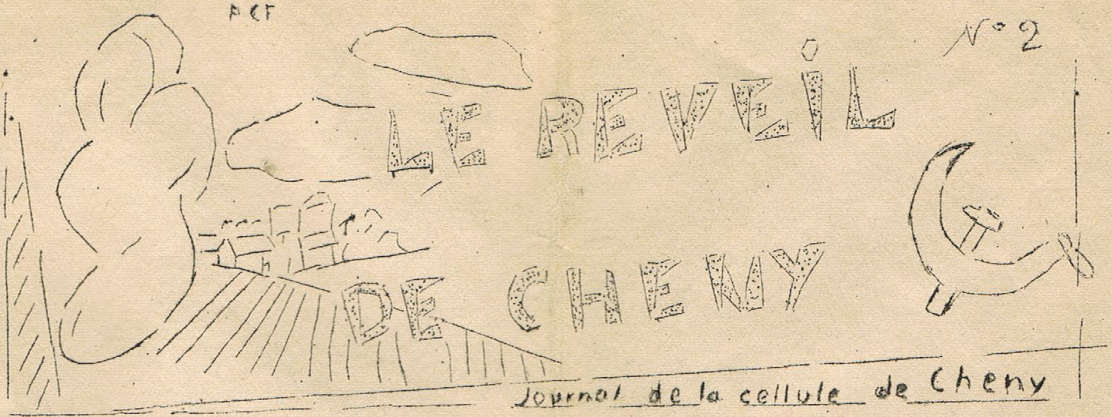 PCF
N° 2
LE REVEIL
DE CHENY
Journal de la cellule de Cheny